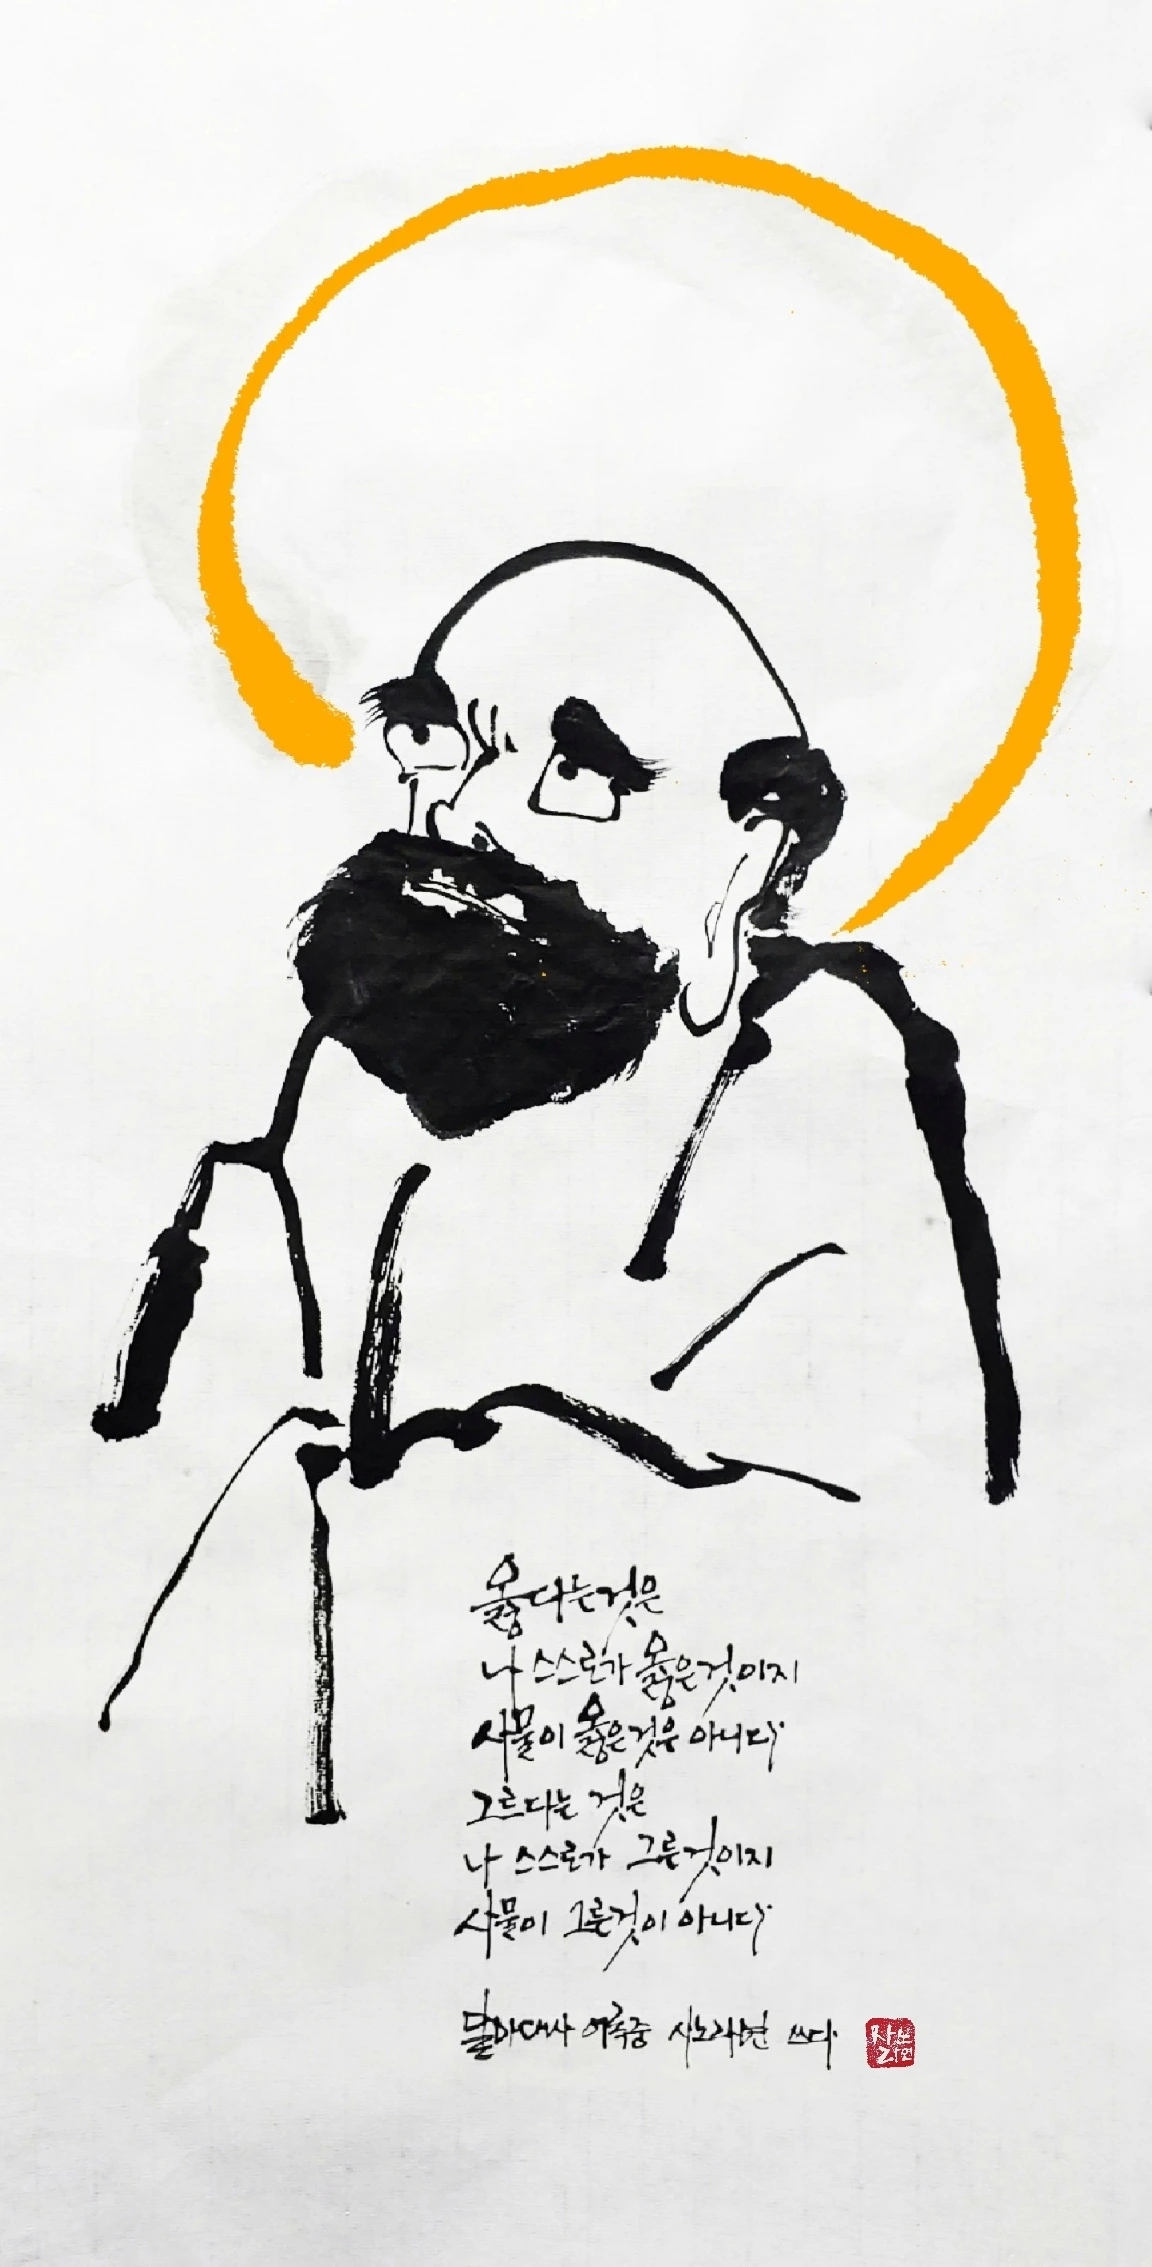 옳다는것은
나 스스로가 옳은것이지
사물이 옳은것은 아니다
그르다는 것은
나 스스로가 그른것이지
사물이 그른것이 아니다
달마대사 어록중 쓰다